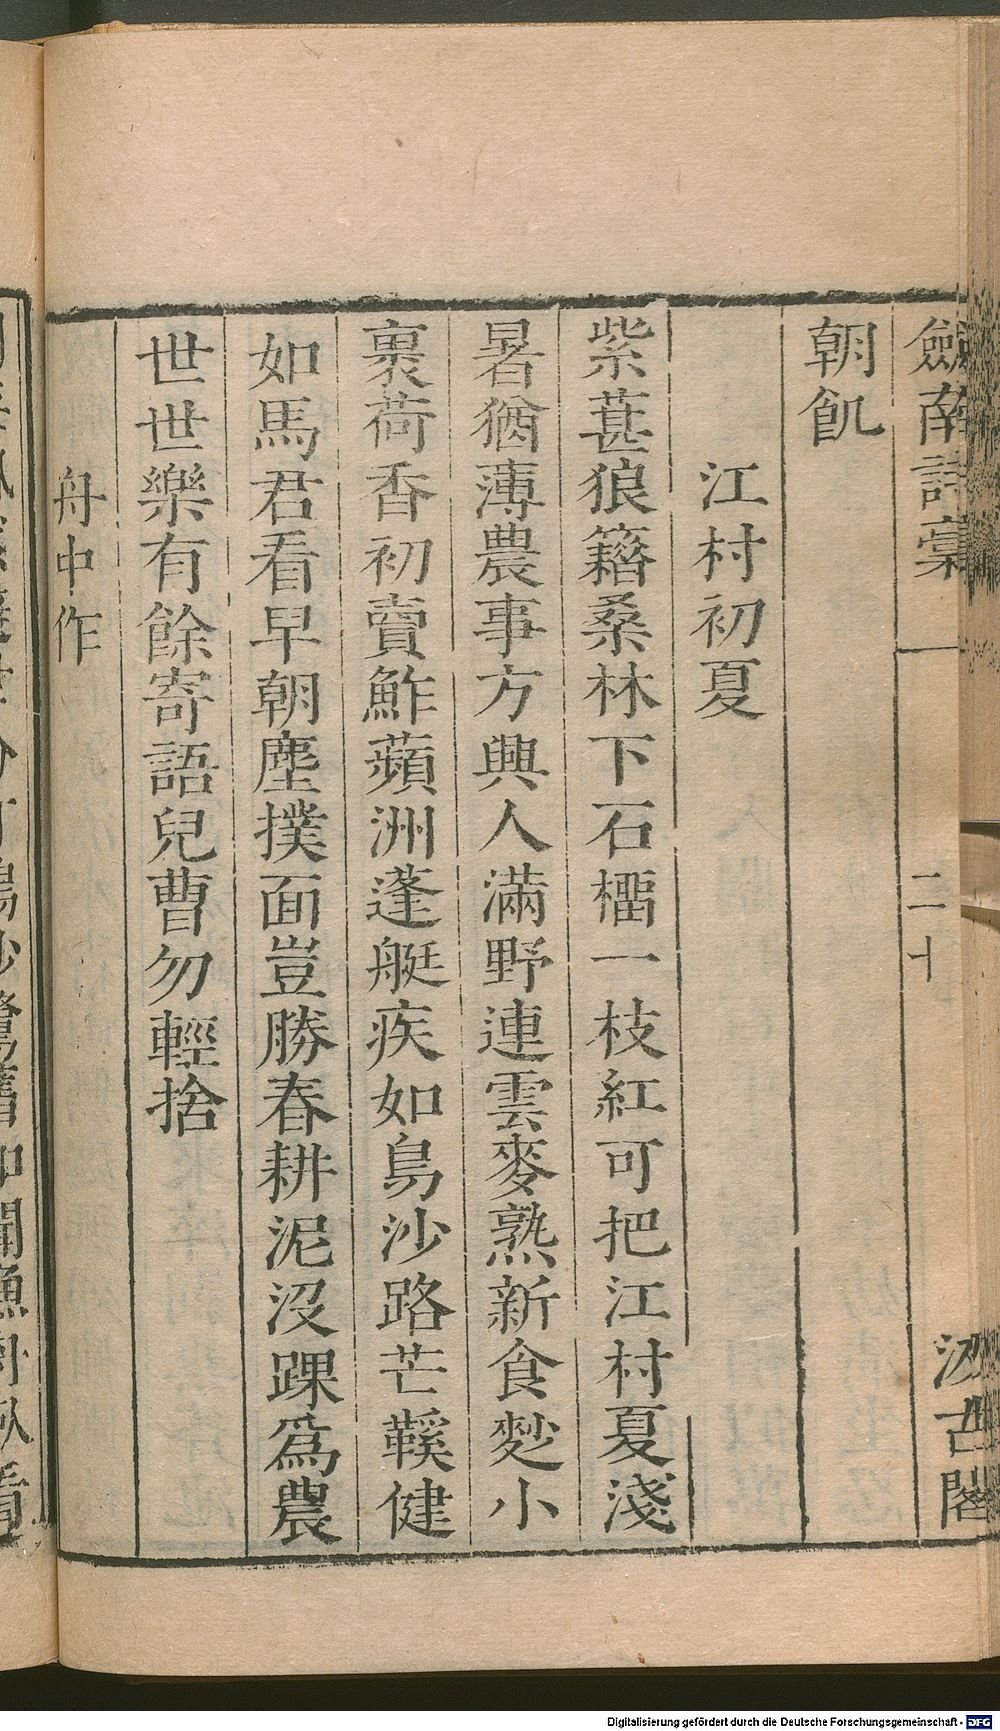 劒南詩稾 二十 汲古閣
朝飢
江村初夏
紫葚狼籍桑林下石橊一枝紅可把江村夏淺
暑猶薄農事方興人滿野連雲麥熟新食麨小
裹荷香初賣鮓蘋洲蓬艇疾如鳥沙路芒鞵健
如馬君看早朝塵撲面豈勝春耕泥沒踝爲農
世世樂有餘寄語兒曹勿輕捨
舟中作
Digitalisierung gefördert durch die Deutsche Forschungsgemeinschaft - DFG